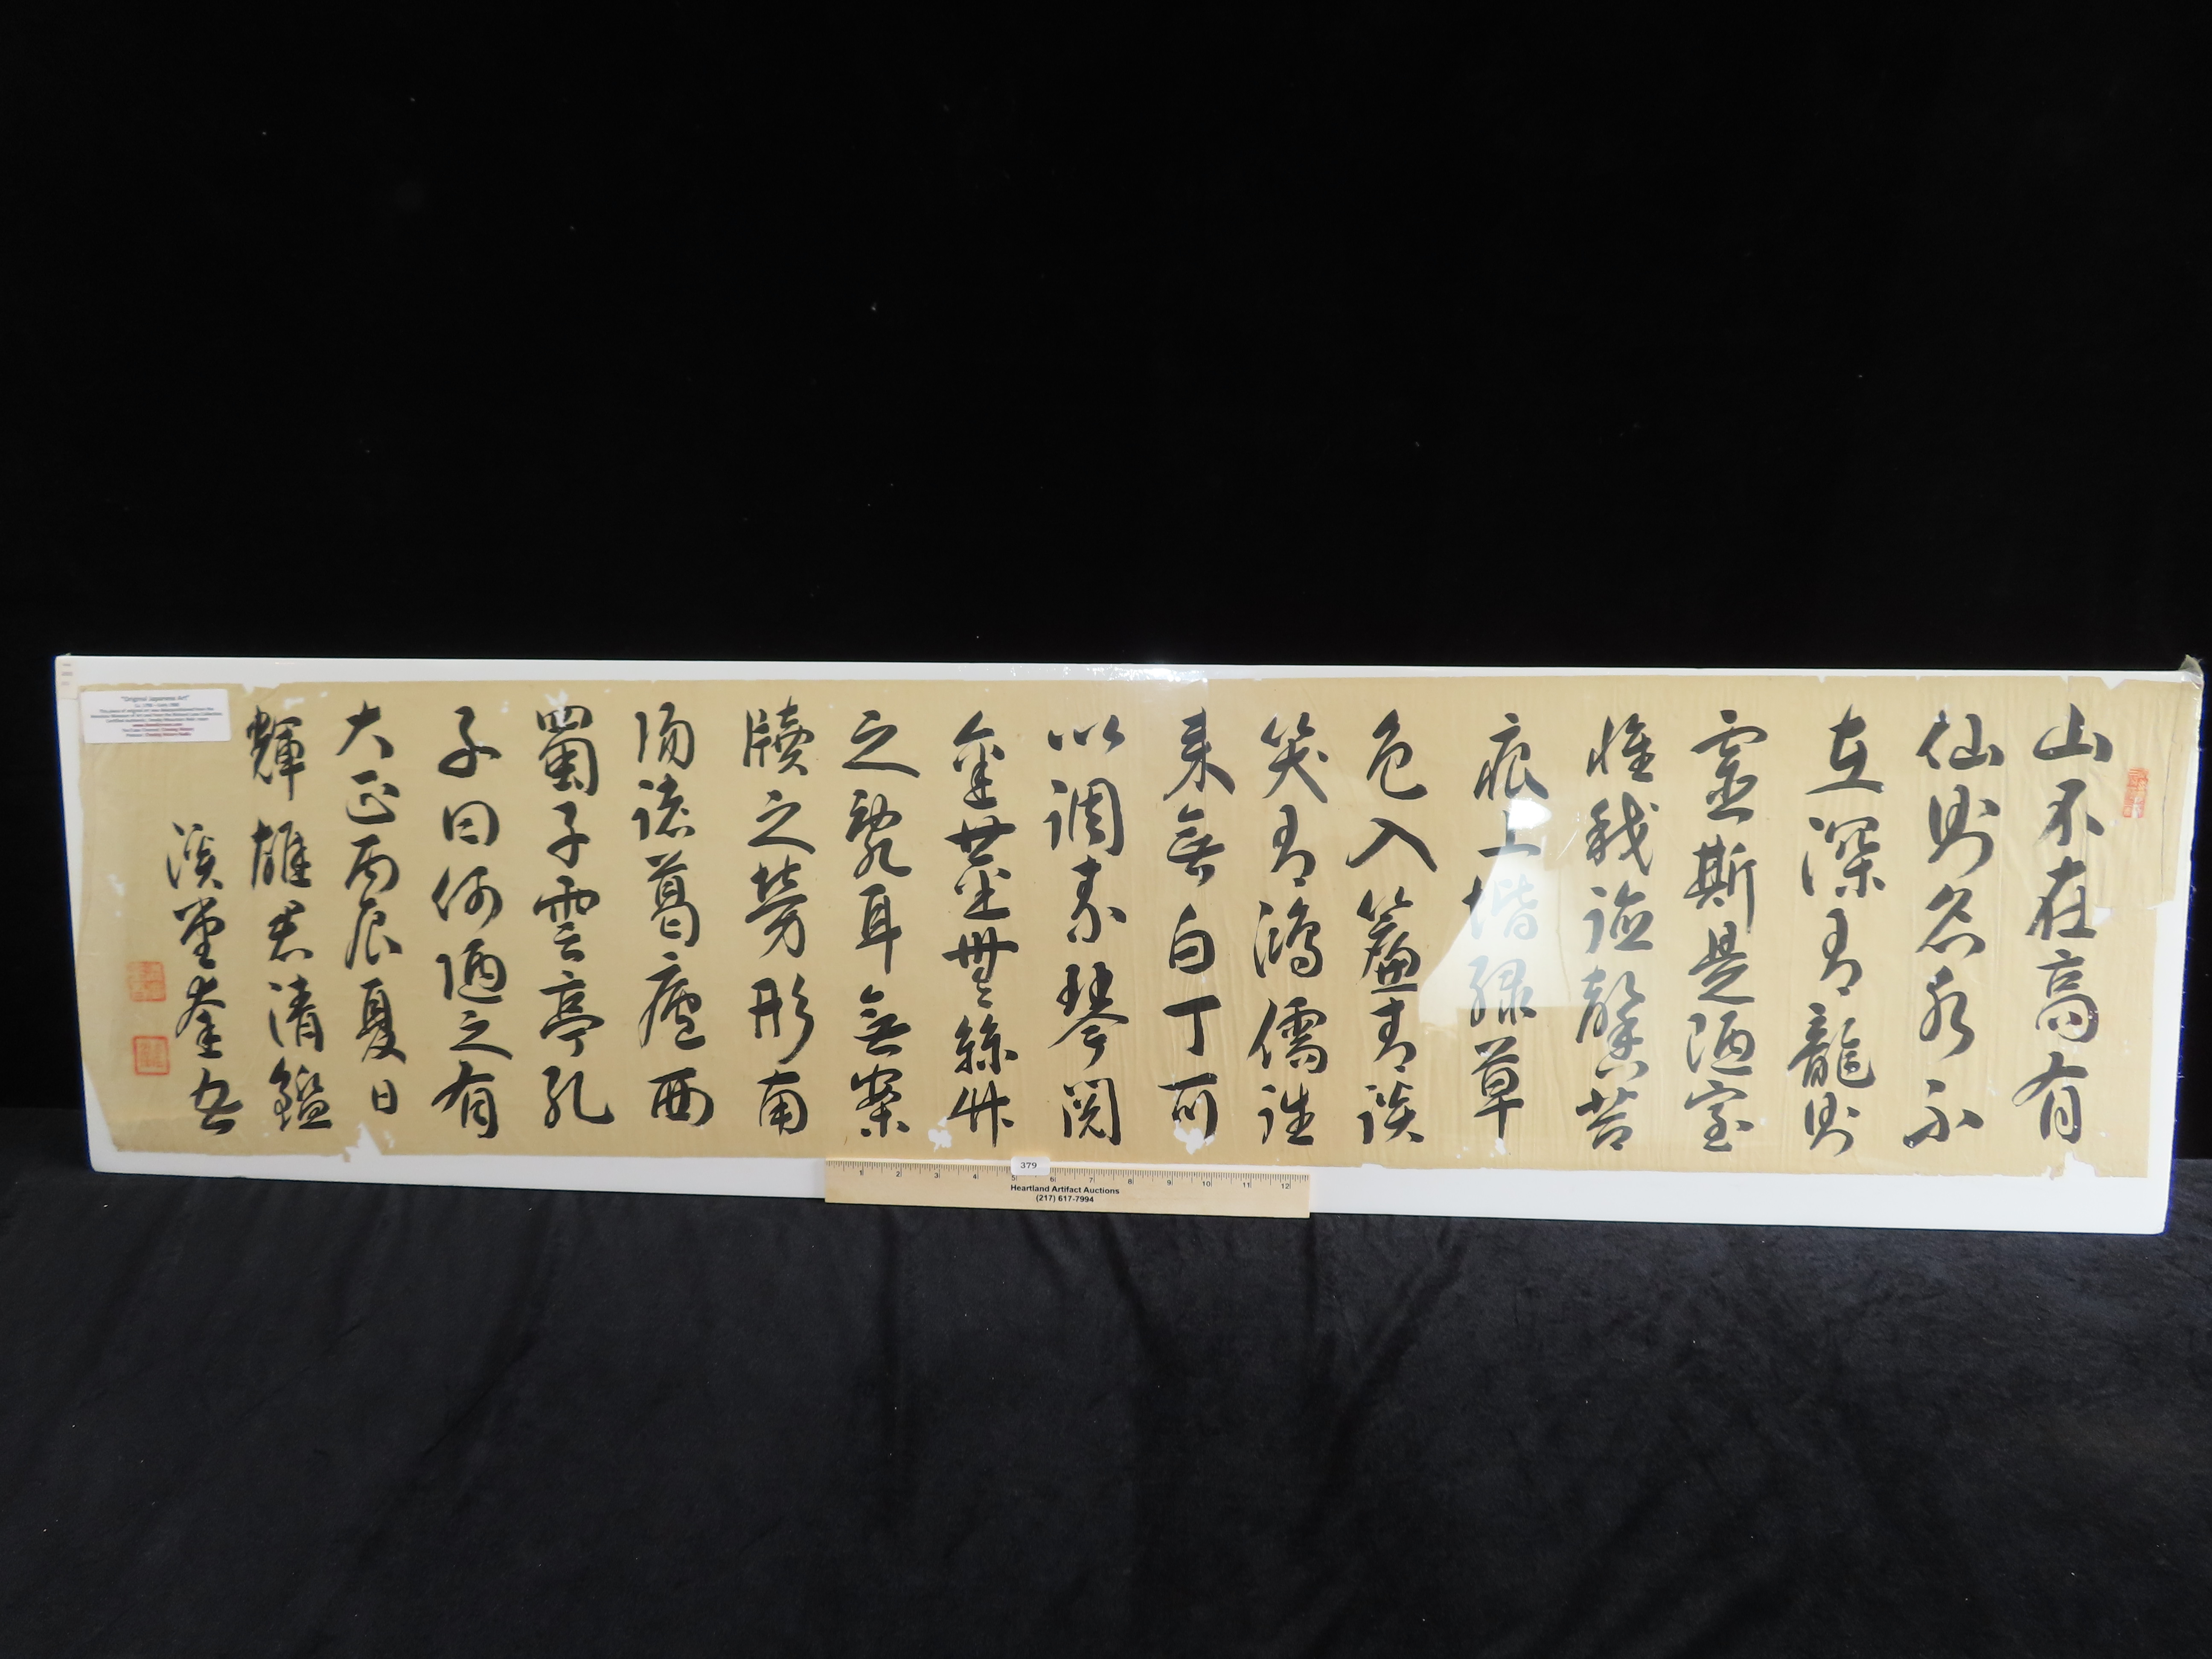 山不在高有
仙則名水不
在深有龍則
靈斯是陋室
惟我德馨苔
痕上堦緑草
色入簾青談
笑有鴻儒往
来無白丁可
以調素琴閲
金無絲竹
之亂耳無案
牘之勞形南
陽諸葛廬西
蜀子雲亭孔
子曰何陋之有
大正丙辰夏日
輝雄君清鑑
渓堂奎
"Original Japanese Art"
379
1 2 3 4 5 6 7 8 9 10 11 12
Heartland Artifact Auctions
(217) 617-7994